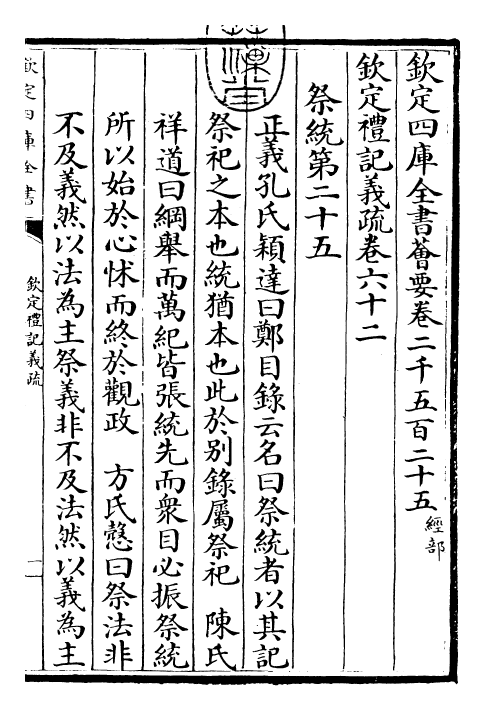 欽定四庫全書薈要卷二千五百二十五經部
欽定禮記義疏卷六十二
祭統第二十五
正義孔氏穎達曰鄭目錄云名曰祭統者以其記
祭祀之本也統猶本也此於別錄屬祭祀　陳氏
祥道曰綱舉而萬紀皆張統先而衆目必振祭統
所以始於心怵而終於觀政　方氏慤曰祭法非
不及義然以法為主祭義非不及法然以義為主
欽定四庫全書
欽定禮記義疏
一